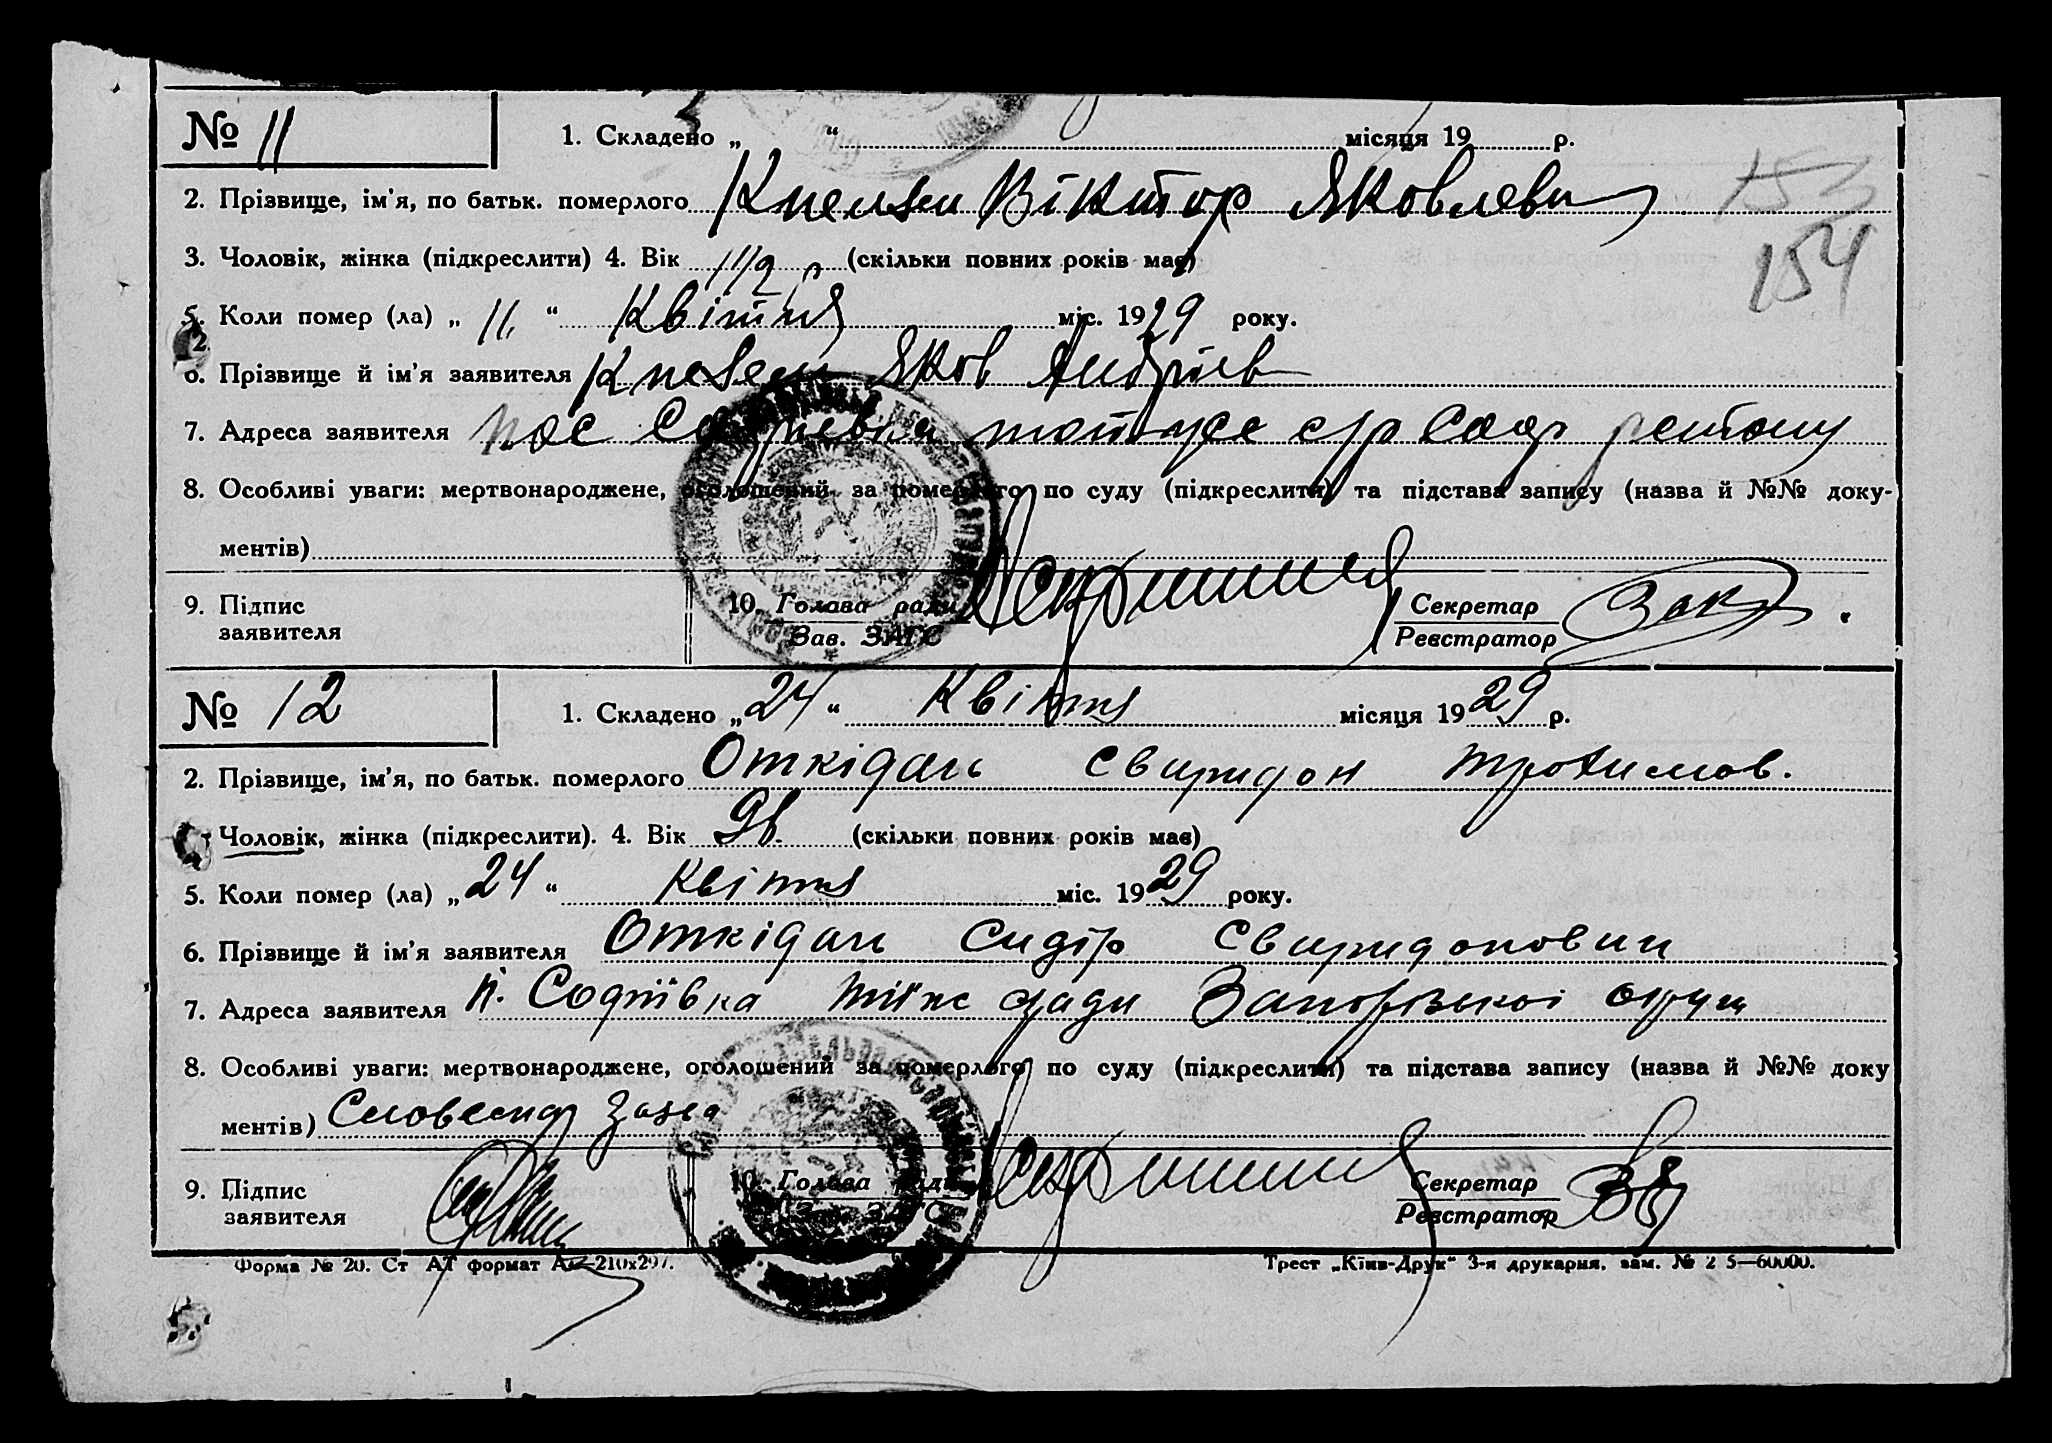 153
154
№ 11
1. Складено „ “ місяця 19 р.
2. Прізвище, ім'я, по батьк. померлого Віктор Яковлеви
3. Чоловік, жінка (підкреслити) 4. Вік 1 1/2 р (скільки повних років має)
5. Коли помер (ла) „ 11 “ Квітня міс. 1929 року.
6. Прізвище й ім'я заявителя Яков Андріев
7. Адреса заявителя пос той же с/р
8. Особливі уваги: мертвонароджене, оголошений за померлого по суду (підкреслити) та підстава запису (назва й №№ доку-
ментів)
9. Підпис заявителя
10. Голова ради
Зав. ЗАГС
Секретар
Реєстратор
№ 12
1. Складено „ 24 “ Квітня місяця 1929 р.
2. Прізвище, ім'я, по батьк. померлого Откідач Свиридон Трохимов.
Чоловік, жінка (підкреслити). 4. Вік (скільки повних років має)
5. Коли помер (ла) „ 24 “ Квітня міс. 1929 року.
6. Прізвище й ім'я заявителя Откідач Сидір Свиридонович
7. Адреса заявителя п. Софіївка тіїж с/ради Запорізької округи
8. Особливі уваги: мертвонароджене, оголошений за померлого по суду (підкреслити) та підстава запису (назва й №№ доку
ментів) Словесна заява
9. Підпис заявителя
10. Голова ради
Зав. ЗАГС
Секретар
Реєстратор
Форма № 20. Ст АТ формат А4—210x297.
Трест „Київ-Друк“ 3-я друкарня, зам. № 2 5—60000.